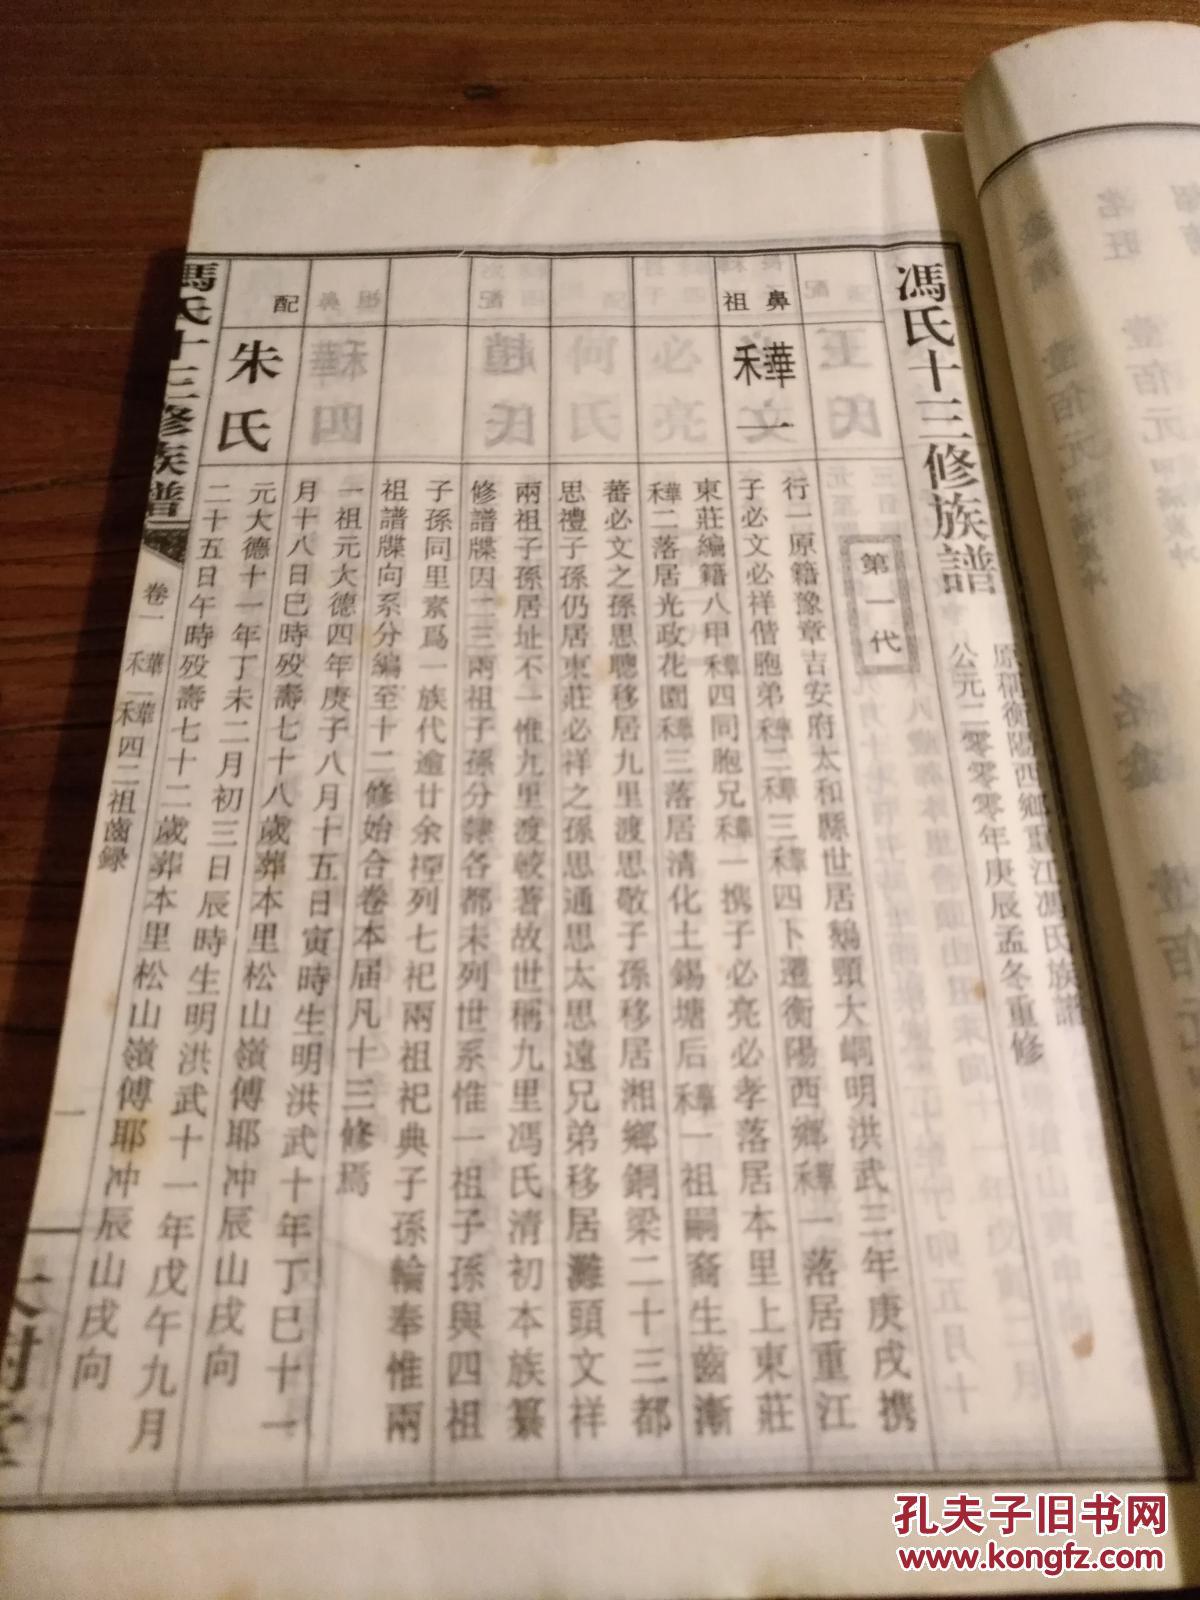 馮氏十三修族譜
原稱衡陽西鄉重江馮氏族譜
公元二零零零年庚辰孟冬重修
第一代
鼻祖
⿰禾華一
行一原籍豫章吉安府太和縣世居鵝頸大峒明洪武三年庚戌携
子必文必祥偕胞弟⿰禾華二⿰禾華三⿰禾華四卜遷衡陽西鄉⿰禾華一落居重江
東莊編籍八甲⿰禾華四同胞兄⿰禾華一携子必亮必孝落居本里上東莊
⿰禾華二落居光政花園⿰禾華三落居清化土錫塘后⿰禾華一祖嗣裔生齒漸
蕃必文之孫思聰移居九里渡思敬子孫移居湘鄉銅梁二十三都
思禮子孫仍居東莊必祥之孫思通思太思遠兄弟移居灘頭文祥
兩祖子孫居址不一惟九里渡較著故世稱九里馮氏清初本族纂
修譜牒因二三兩祖子孫分隸各都未列世系惟一祖子孫與四祖
子孫同里素爲一族代逾廿余禋列七祀兩祖祀典子孫輪奉惟兩
祖譜牒向系分編至十二修始合卷本届凡十三修焉
一祖元大德四年庚子八月十五日寅時生明洪武十年丁巳十一
月十八日巳時殁壽七十八歲葬本里松山嶺傅耶冲辰山戌向
配
朱氏
元大德十一年丁未二月初三日辰時生明洪武十一年戊午九月
二十五日午時殁壽七十二歲葬本里松山嶺傅耶冲辰山戌向
馮氏十三修族譜
卷一
⿰禾華一⿰禾華四二祖齒録
一
孔夫子旧书网
www.kongfz.com